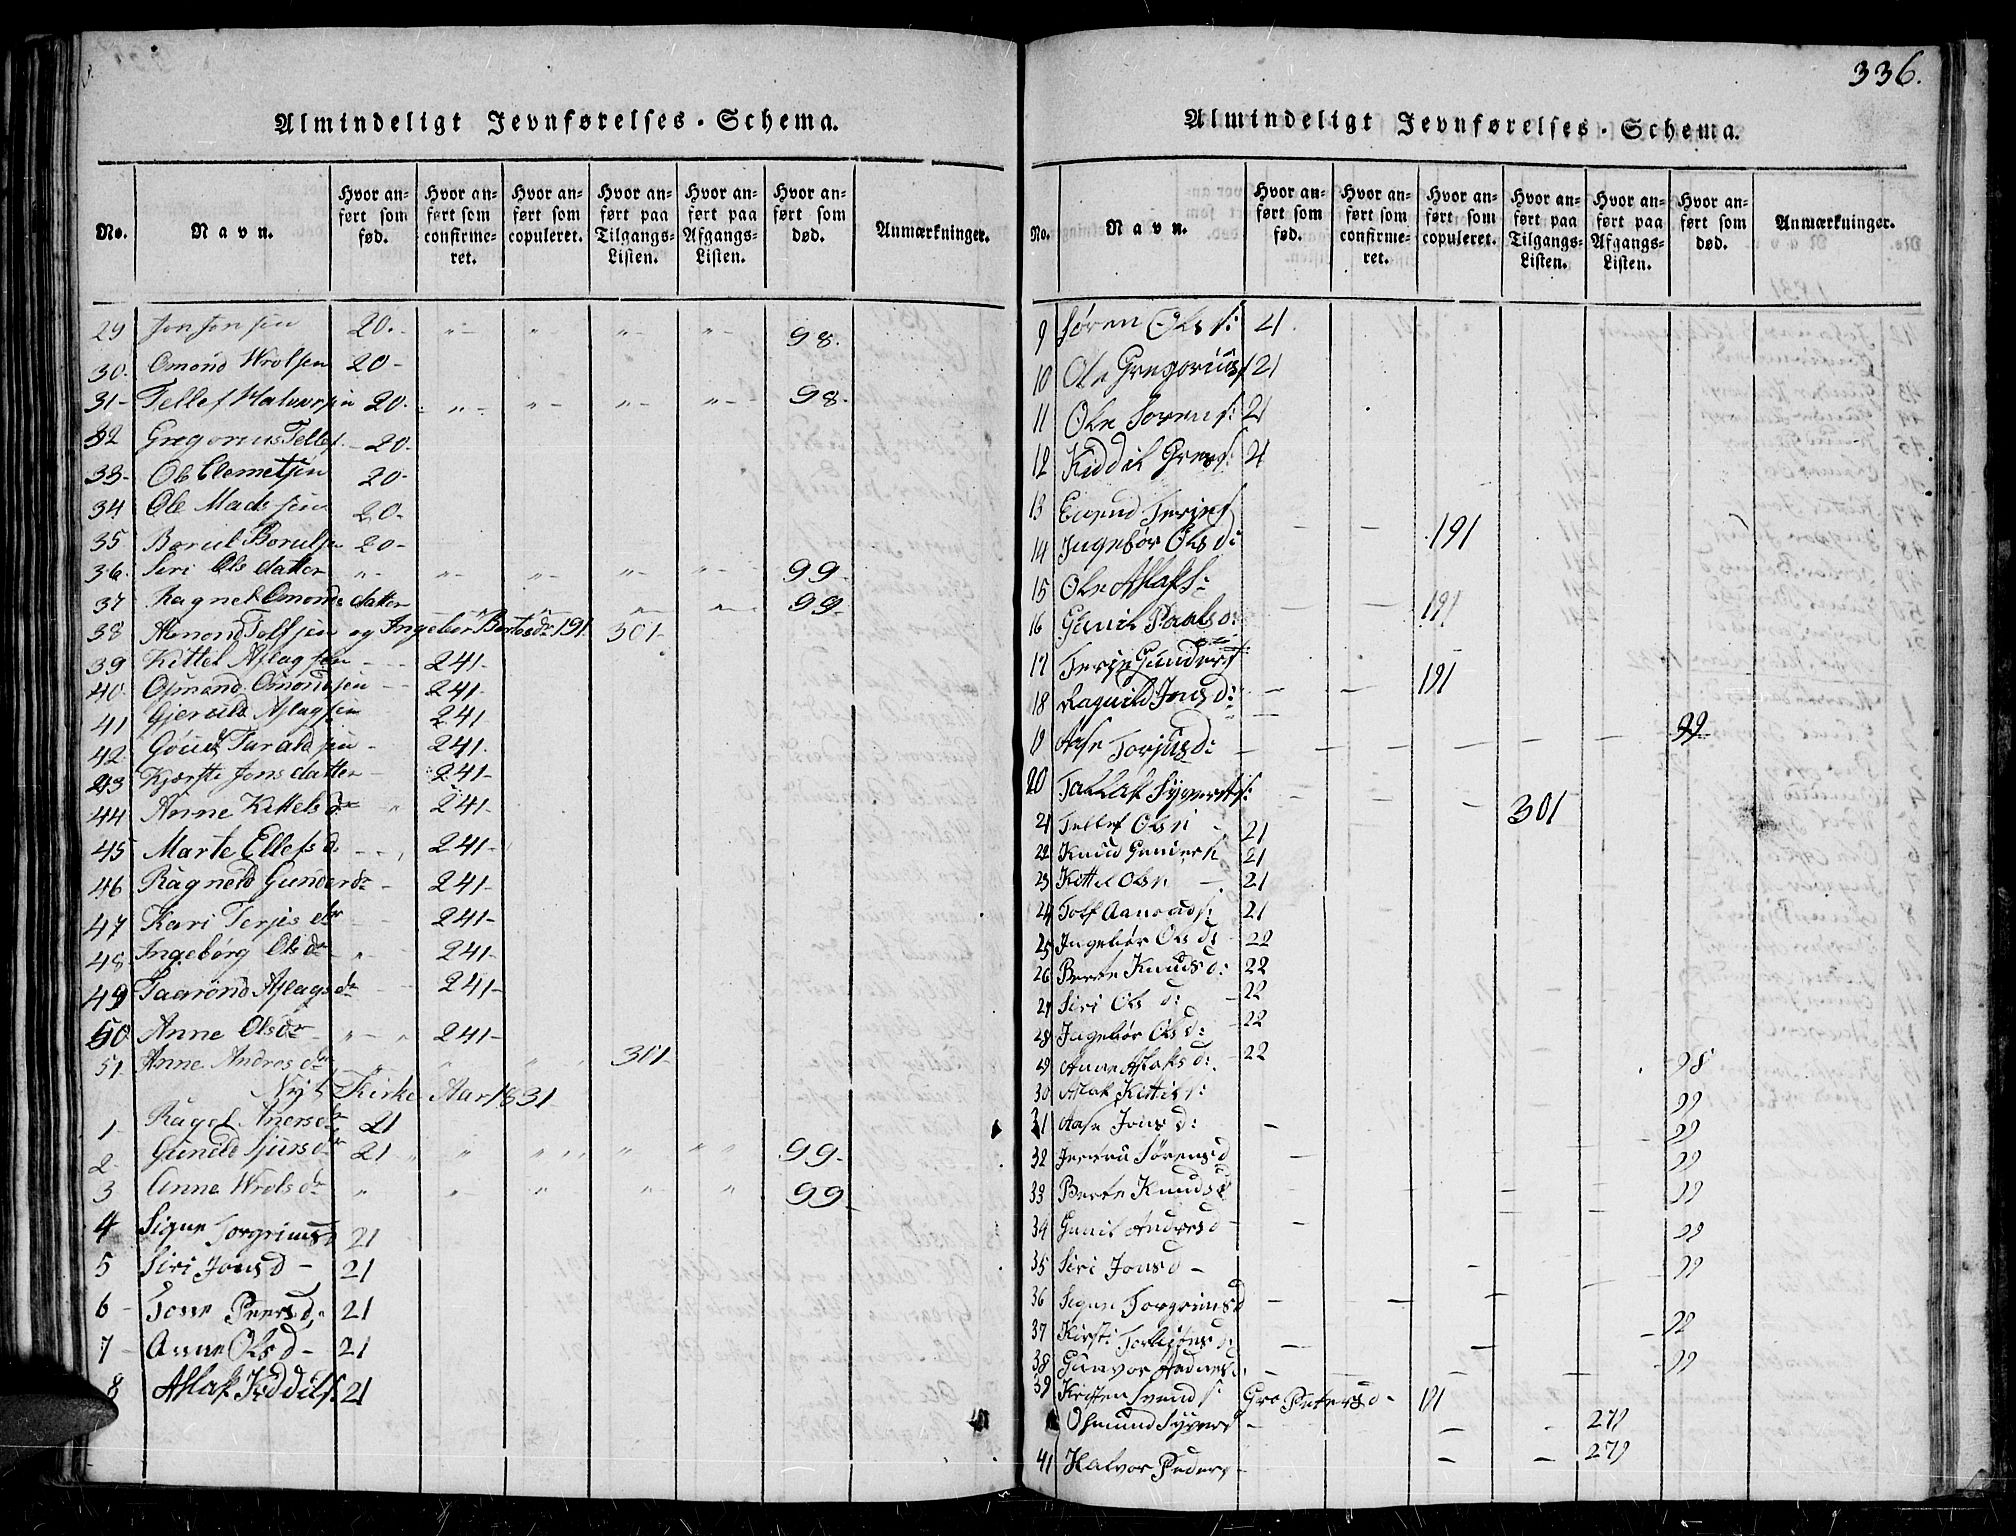 336.
Almindeligt Jevnførelses-Schema.
No. Navn. Hvor anført som fød. Hvor anført som confirmeret. Hvor anført som copuleret. Hvor anført paa Tilgangs-Listen. Hvor anført paa Afgangs-Listen. Hvor anført som død. Anmærkninger.
29 Jon Jonsen 20. 98.
30. Omond Wrolsen 20-
31- Tellef Halvorsen 20. 98.
32 Gregorius Tellefs. 20.
33- Ole Clemetsen 20-
34 Ole Madssen 20-
35 Borul Borulsen 20-
36. Siri Olsdatter 99-
37 Ragnel Omonds datter 99-
38 Amond Tolfsen og Ingebor 191. 301-
39 Kittel Aslagsen 241-
40 Osmond Omondsen 241-
41 Gjeruld Aslagsen 241
42. Taraldsen 241.
43 Kjerste Jonsdatter 241-
44 Anne Kittelsdr 241-
45 Marte Ellefsd. 241-
46 Ragneld Gunderdr 241-
47 Kari Terjesdr 241-
48 Ingebørg Olsdr 241-
49 Taarond Aslagsdr 241-
50 Anne Olsdr 241-
51- Anne Andresdr 301-
Nyt Kirke Aar 1831-
1 Ragel Anersdr 21
2 Gunild Sjursdr 21 99-
3 Anne Wrolsdr 99-
4 Signe Torgrimsd 21
5 Siri Jonsd- 21
6- Tone Peersd: 21
7- Anne Olsd- 21
8 Aslak Kiddils. 21
Almindeligt Jevnførelses-Schema.
No. Navn. Hvor anført som fød. Hvor anført som confirmeret. Hvor anført som copuleret. Hvor anført paa Tilgangs-Listen. Hvor anført paa Afgangs-Listen. Hvor anført som død. Anmærkninger.
9 Søren Ols s: 21
10 Ole Gregorius 21
11 Ole Sorens: 21
12 Kiddil Gregs: 21
13 Evend Terjes
14 Ingebør Olsd: 191
15 Ole Aslaks:
16 Gunil Paalsd: 191
17 Terje Gunders
18 Raguild Jonsd: 191
19 Aase Torjusd: 99
20 Tallak Syverts: 301
21 Tellef Ols 21
22 Knud Gunders 21
23 Kittel Ols 21
24 Tolf Aanonds: 21
25 Ingebør Olsd: 22
26 Berte Knudsd: 22
27 Siri Ols d: 22
28 Ingebør Olsd: 22
29 Anne Aslaksd: 22 98
30 Aslak Kittils: 99
31 Aase Jonsd: 99
32 Sørensd 99
33 Berte Knudsd 99
34 Gunil Andersd 99
35 Siri Jonsd- 99
36 Signe Torgrimsd
37 Kirsti d: 99
38 Gunvor Aadnesd: 99
39 Kristen Svends: Gro Petersd- 191
Osmund Syvers 279
41 Halvor Peders 279